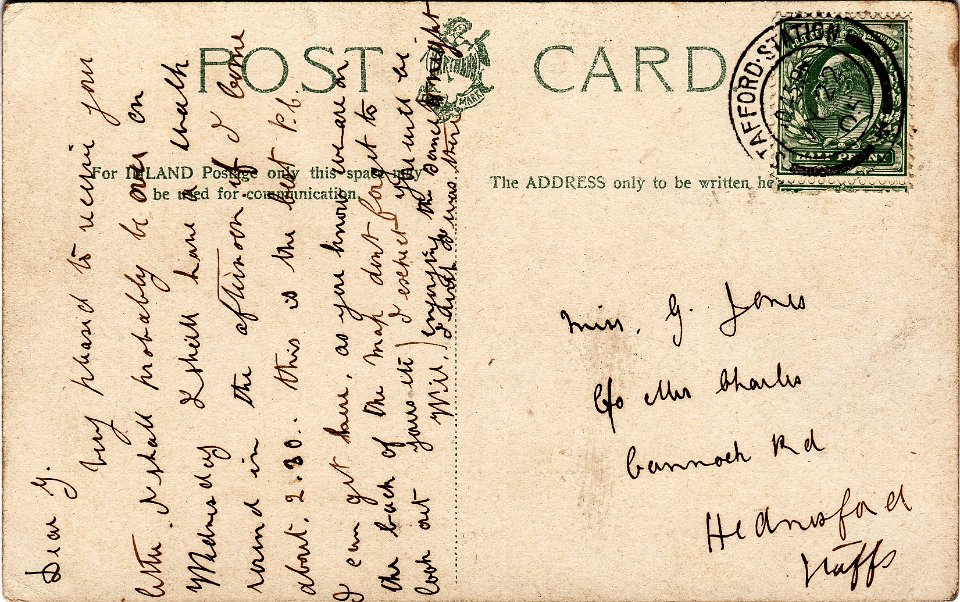 POST CARD
For INLAND Postage only this space may
be used for communication.
The ADDRESS only to be written he
STAFFORD STATION
NO 22
05
HALF PENNY
Dear G.
very pleased to receive your
letter. I shall probably be over on
Wednesday I shall have a walk
round in the afternoon if I come
about. 2.30. this is the best P.C
I can get here, as you know we are on
the back of the map dont forget to
look out yours etc
Will.
I expect you will be
enjoying the
I was there
Miss. G. Jones
C/o Mrs Charles
Cannock Rd
Hednesford
Staffs